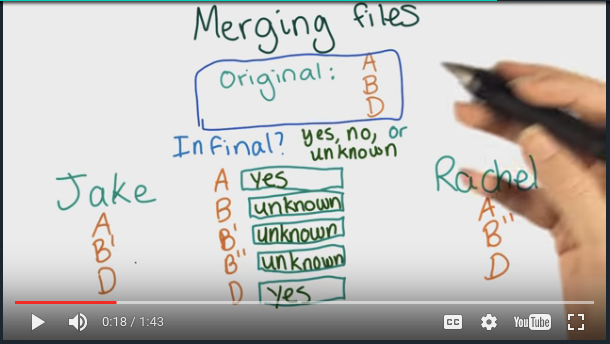 Merging files
Original: A
B
D
In final? yes, no, or
unknown
Jake
A
B'
D
A yes
B unknown
B' unknown
B" unknown
D yes
Rachel
A
B"
D
0:18 / 1:43
CC
YouTube